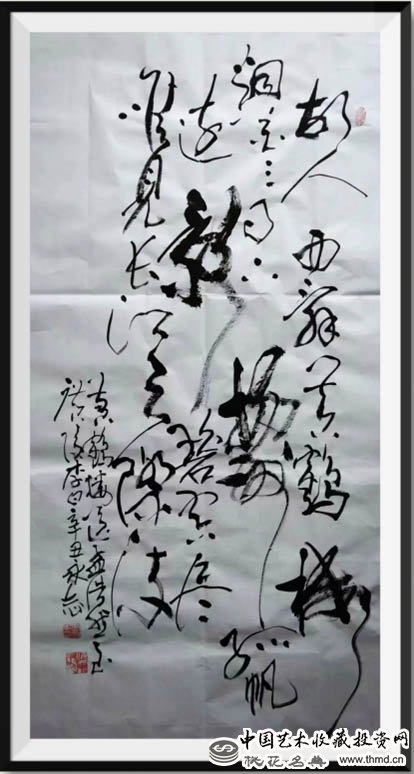 故人西辞黄鶴楼
烟花三月下揚州孤帆
遠影碧空尽
唯見长江天際流
黄鶴楼送孟浩然之
广陵李白辛丑秋
中国艺术收藏投资网
桃花名典 www.thmd.cn